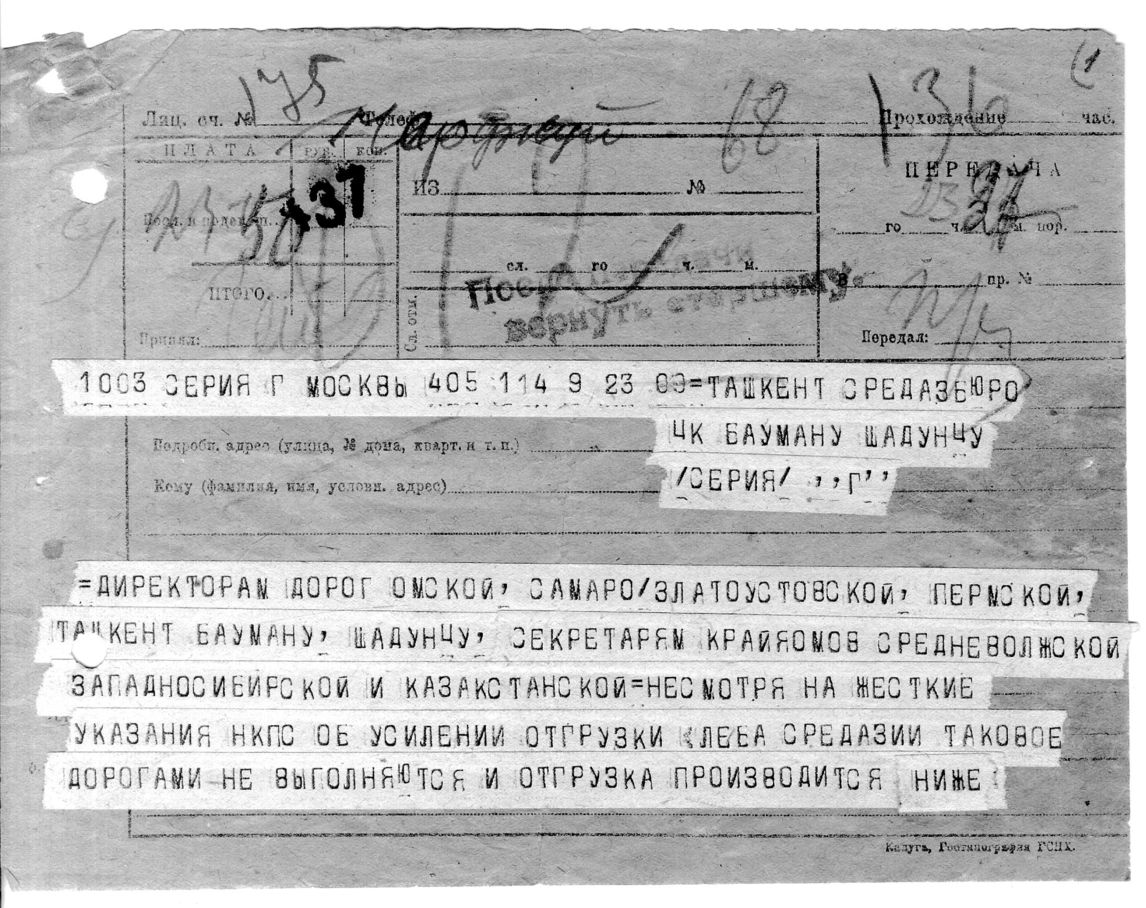 175
Лиц. сч. № Телеф 68 136
Прохождение час.
ПЛАТА РУБ. КОП.
437
ИЗ №
ПЕРЕДАЧА
го ч. м. пор.
50
сл. го ч. м.
В пр. №
ИТОГО
После передачи
вернуть старшему.
Сл. отм.
Принял:
Передал:
1003 СЕРИЯ Г МОСКВЫ 405 114 9 23 09=ТАШКЕНТ СРЕДАЗБЮРО
ЦК БАУМАНУ ШАДУНЦУ
/СЕРИЯ/ ,,Г’’
Подробн. адрес (улица, № дома, кварт. и т. п.)
Кому (фамилия, имя, условн. адрес)
=ДИРЕКТОРАМ ДОРОГ ОМСКОЙ, САМАРО/ЗЛАТОУСТОВСКОЙ, ПЕРМСКОЙ,
ТАШКЕНТ БАУМАНУ, ШАДУНЦУ, СЕКРЕТАРЯМ КРАЙЯОМОВ СРЕДНЕВОЛЖСКОЙ
ЗАПАДНОСИБИРСКОЙ И КАЗАКСТАНСКОЙ=НЕСМОТРЯ НА ЖЕСТКИЕ
УКАЗАНИЯ НКПС ОБ УСИЛЕНИИ ОТГРУЗКИ ХЛЕБА СРЕДАЗИИ ТАКОВОЕ
ДОРОГАМИ НЕ ВЫГОЛНЯЮТСЯ И ОТГРУЗКА ПРОИЗВОДИТСЯ НИЖЕ
Калуга, Гостипография ГСНХ.